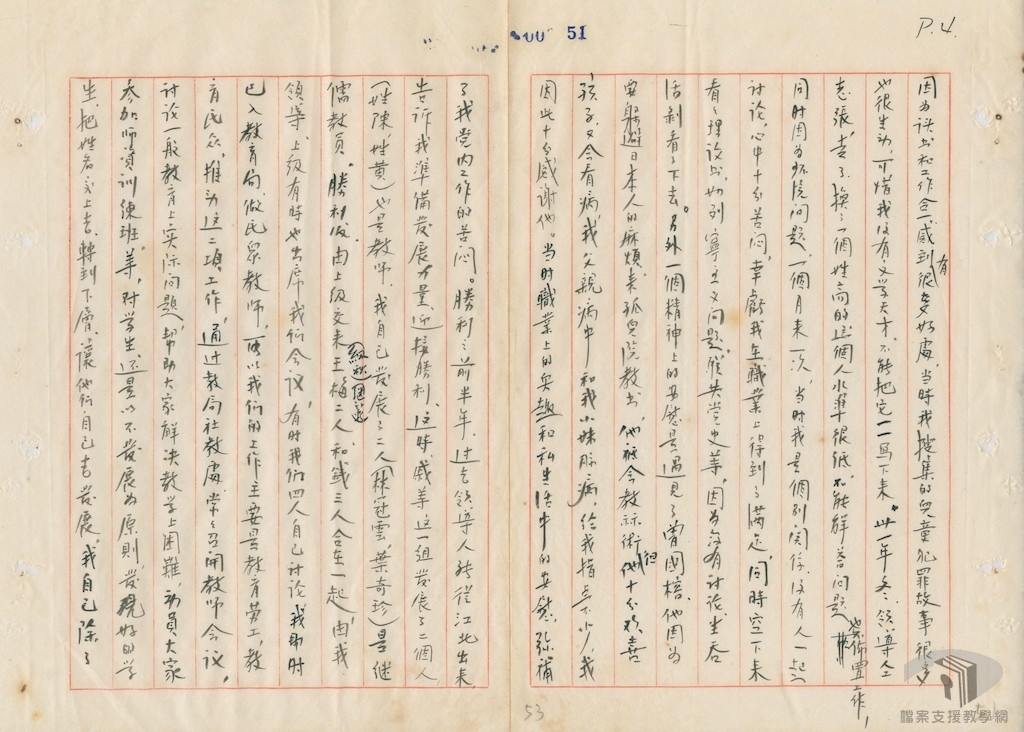 P.4.
51
因为读书和工作合一,感到有很多好處,当時我搜集的兒童犯罪故事很多
也很生动,可惜我没有文学天才,不能把它一一写下来。此一年冬,领導人
志張,走了,换了一個姓高的,這個人水準很低,不能解答问題,
也不能佈置工作,
同時因为环境问題,一個月来一次,当时我是個别関係,没有人一起
讨论,心中十分苦闷,幸虧我在職業上得到了满足,同時空下来
看看理论书,如列寧主义问題、联共党史等,因为没有讨论,生吞
活剥看了下去。另外一個精神上的安慰是遇見了曾國榕,他因为
要躲避日本人的麻煩来孤兒院教书,他
孩子,又会看病,我父親病中和我小妹肺病,给我指点不少,我
因此十分感谢他。当时職業上的兴趣和私生活中的安慰,弥補
了我党内工作的苦闷。勝利之前半年,过去领導人
告诉我準備发展力量迎接勝利,这時戚等這一組发展了二個人
(姓陳姓黄)也是教师,我自己发展了二人(林冠雲、葉奇珍)是继
儒教员。勝利后,由上级交来王、梅二人,和戚三人合在一起,由我
领導,上级有時也出席我们会议,有时我们四人自己讨论,我那时
已入教育局,做民眾教师,所以我们的工作主要是教育劳工,教
育民众,推动这二项工作,通过教局社教處常常召開教师会议,
讨论一般教育上实际问題,帮助大家解决教学上困難,动員大家
参加师資训練班等,对学生还是以不发展为原則,发現好的学
生,把姓名交上去,轉到下層,讓他们自己去发展。我自己除了
53
檔案支援教學網